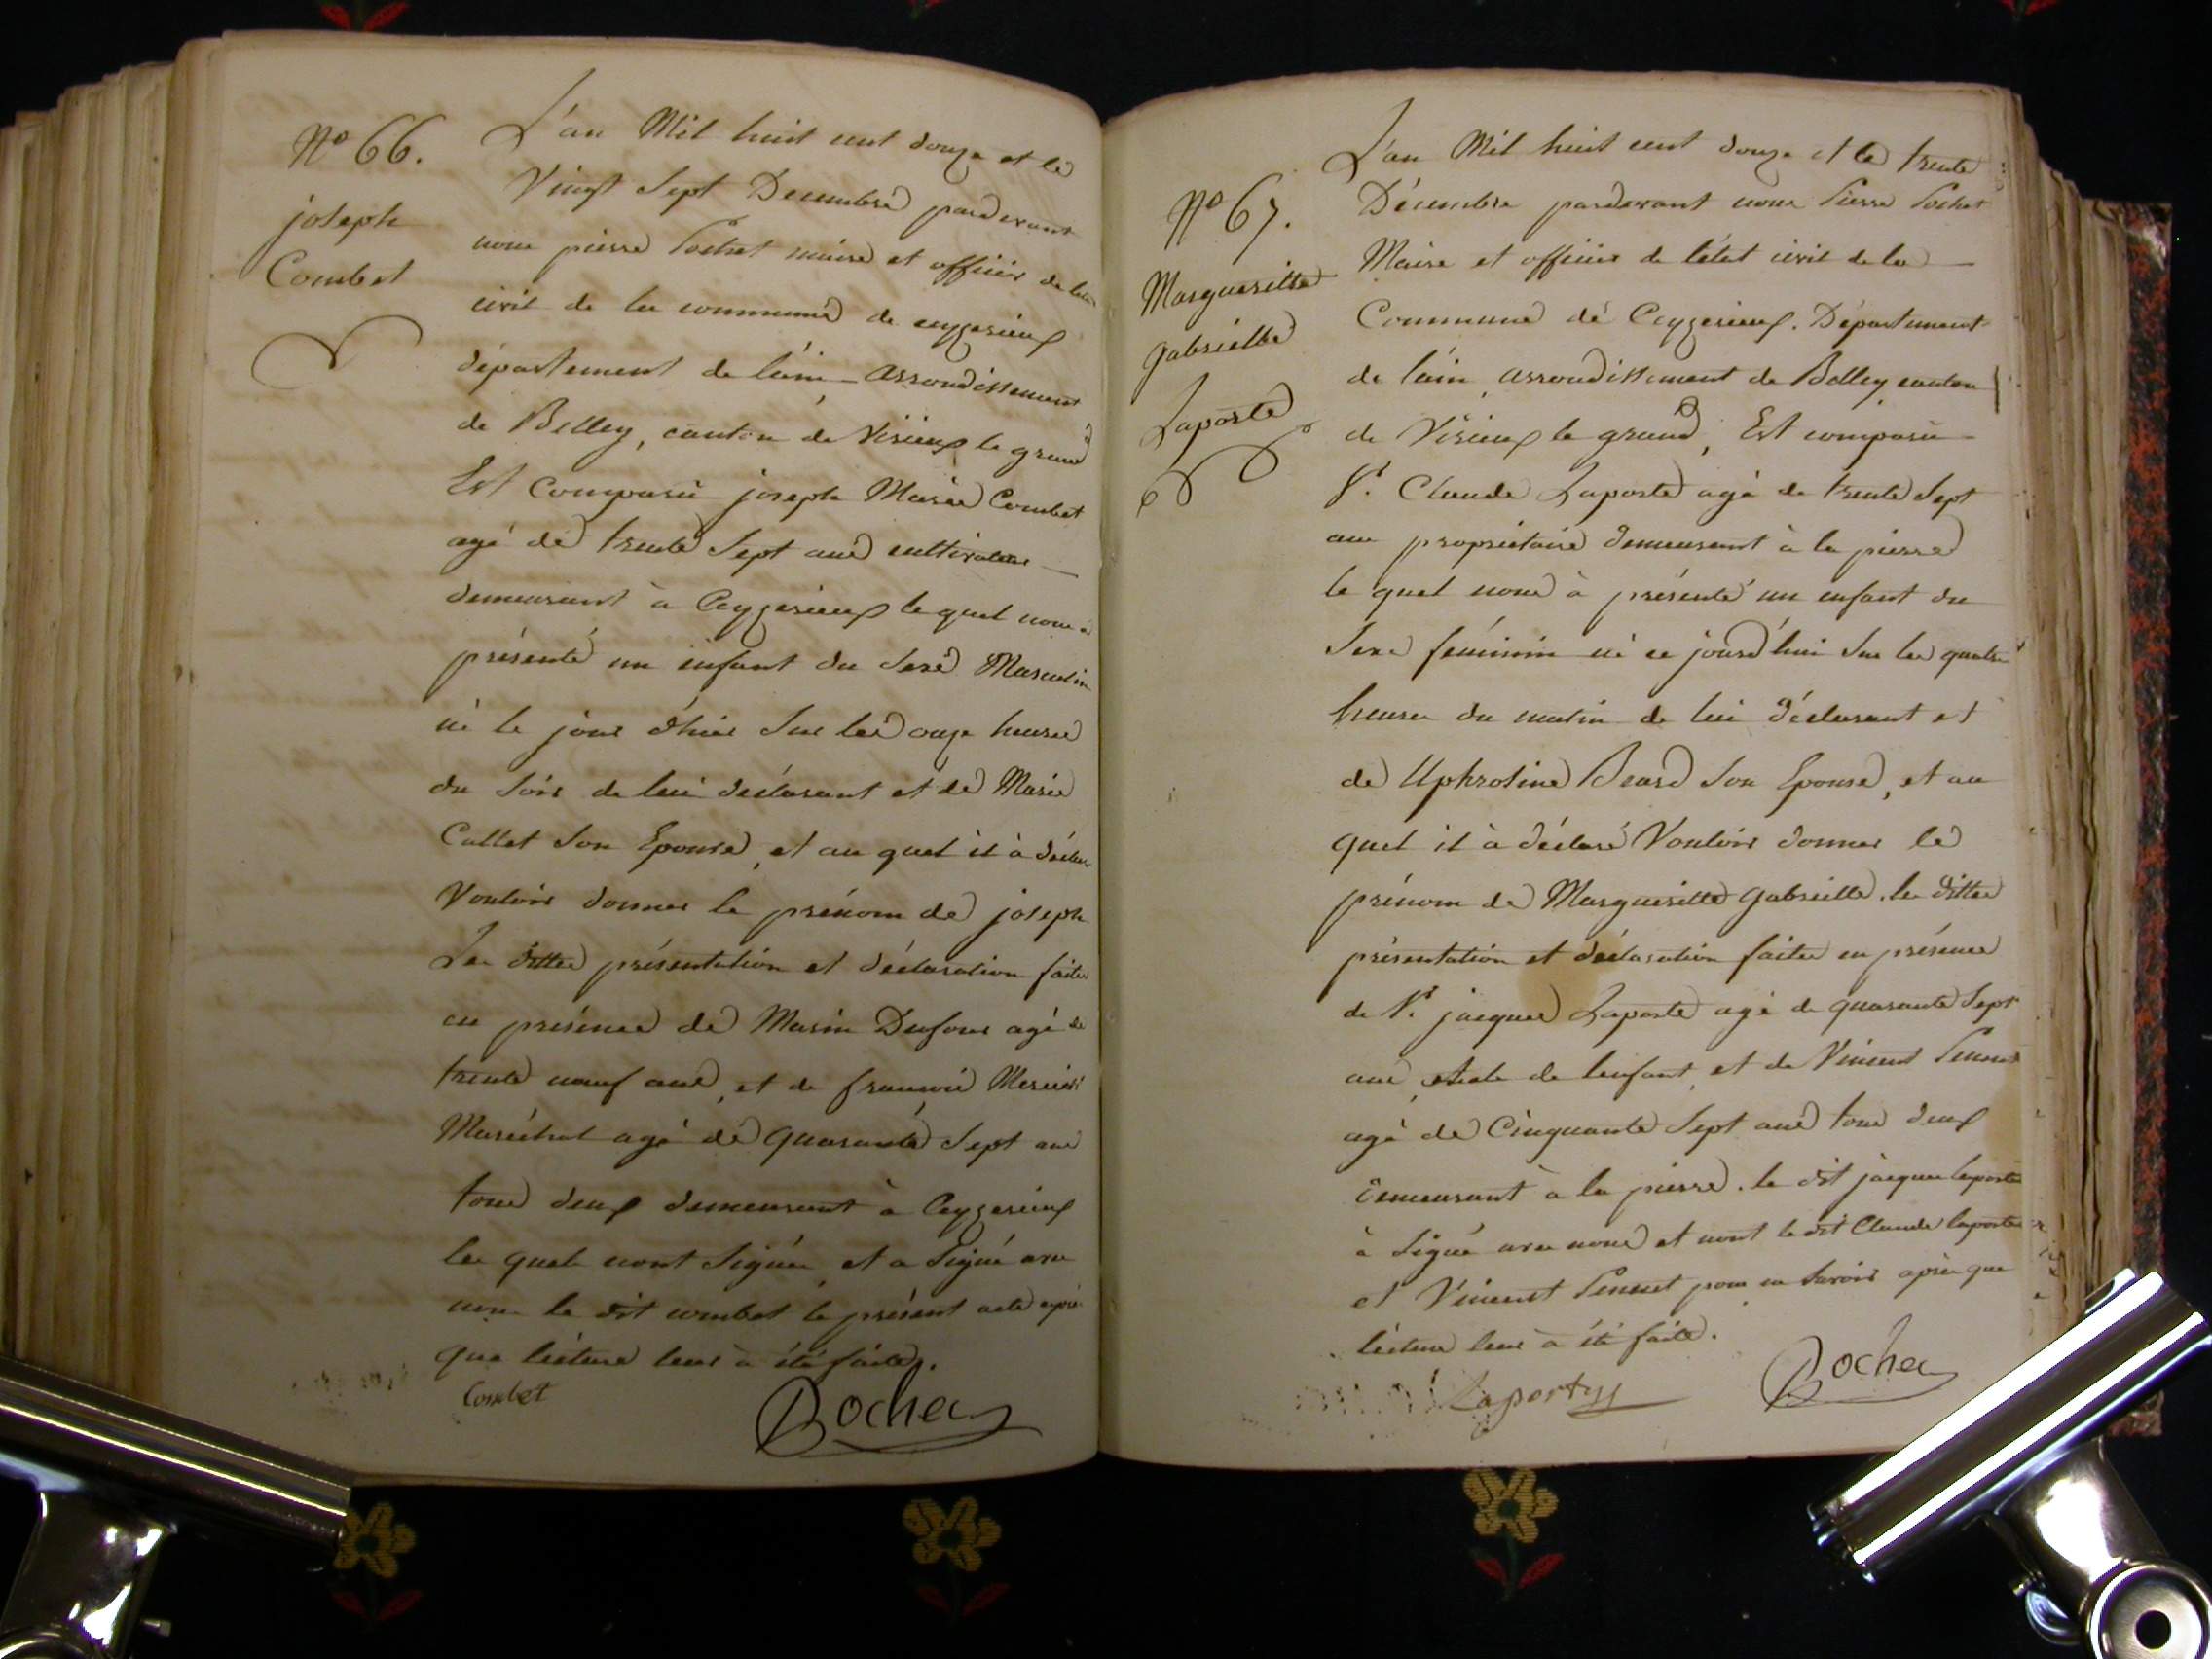 N° 66.
joseph
Combet
L'an Mil huit cent douze et le
Vingt Sept Decembre pardevant
nous pierre Pochet maire et officier de l'état
civil de la commune de ceyzerieux
département de l'ain Arrondissement
de Belley, canton de Virieux le grand
Est Comparu joseph Marie Combet
agé de trente Sept ans cultivateur
demeurant à Ceyzerieux le quel nous a
présenté un enfant du Sexe Masculin
né le jour d'hier Sur les onze heures
du Soir de lui déclarant et de Marie
Callet Son Epouse, et au quel il à déclaré
Vouloir donner le prénom de joseph
Les dittes présentation et déclaration faites
en présence de Marin Dufour agé de
trente neuf ans, et de francois Mercier
Maréchal agé de quarante Sept ans
tous deux demeurant à Ceyzerieux
les quels n'ont Signés, et a Signé avec
nous le dit combet le présent acte après
que lécture leur à été faites.
Combet
Pochet
N° 67.
Margueritte
gabrielle
Laporte
L'an Mil huit cent douze et le trente
Décembre pardevant nous Pierre Pochet
Maire et officier de l'état civil de la
Commune de Ceyzerieux. Département
de l'ain, arrondissement de Belley canton
de Virieux le grand, Est comparu
Sr. Claude Laporte agé de trente Sept
ans propriétaire demeurant à la pierre
le quel nous à présenté un enfant du
Sexe féminin né ce jourd'hui Sur les quatre
heures du matin de lui déclarant et
de Uphrosine Beard Son Epouse, et au
quel il à déclaré Vouloir donner le
prénom de Margueritte gabrielle. les dittes
présentation et déclaration faites en présence
de Sr. jacques Laporte agé de quarante Sept
ans, oncle de l'enfant, et de Vincent Pennet
agé de Cinquante Sept ans tous deux
demeurant à la pierre. le dit jacques laporte
à Signé avec nous et n'ont le dit Claude laporte
et Vincent Pennet pour ne Savoir après que
lécture leur à été faite.
Laporte
Pochet